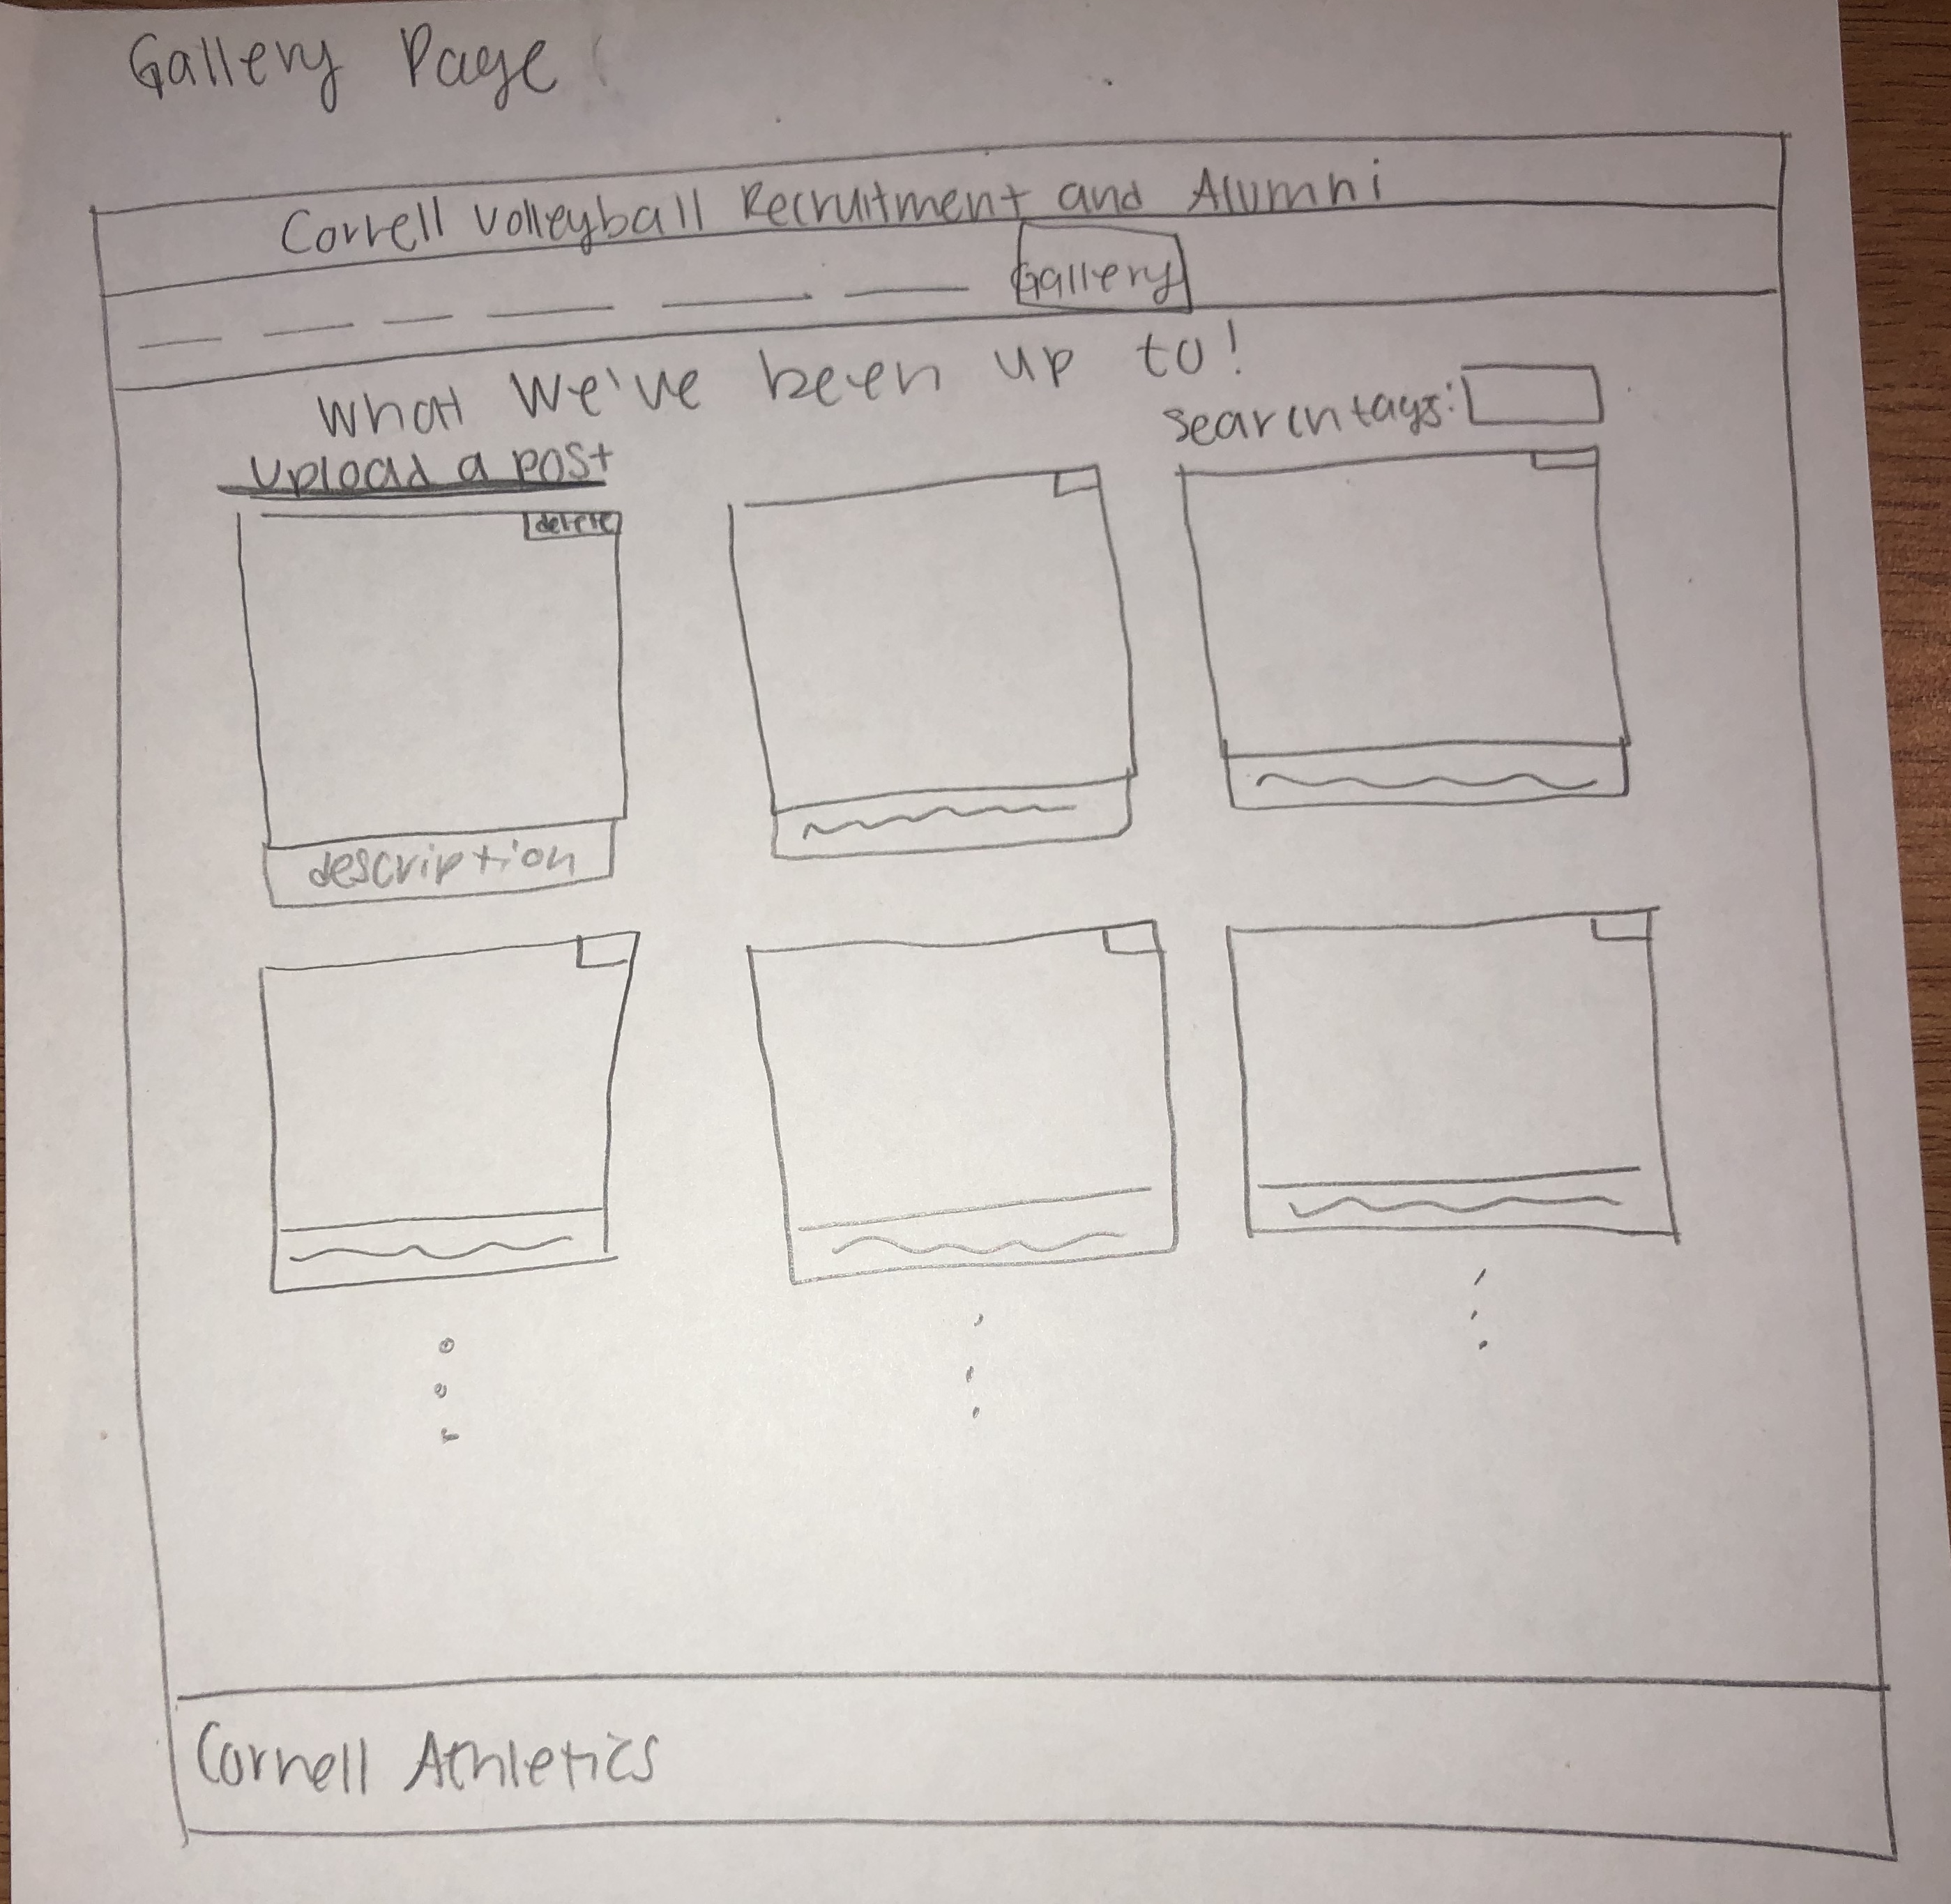 Gallery Page
Cornell Volleyball Recruitment and Alumni
Gallery
What We've been up to!
search tags:
upload a post
delete
description
Cornell Athletics